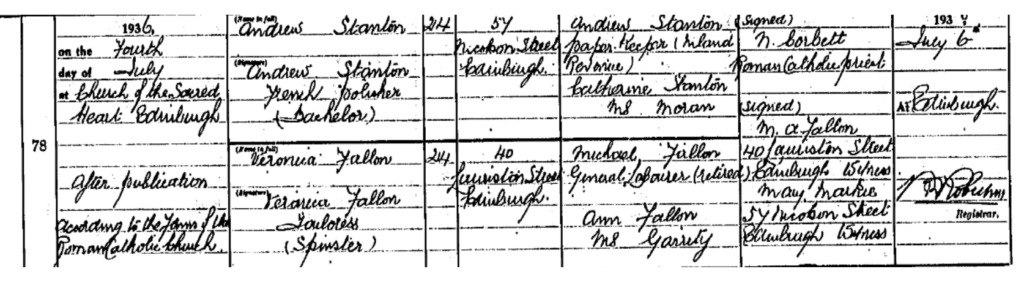 78
1936,
on the Fourth
day of July
at Church of the Sacred
Heart Edinburgh
After publication
According to the Forms of the
Roman Catholic Church.
(Name in full)
Andrew Stanton
(Signature)
Andrew Stanton
French Polisher
(Bachelor)
(Name in full)
Veronica Fallon
(Signature)
Veronica Fallon
Tailoress
(Spinster)
24
24
57
Nicolson Street
Edinburgh.
40
Lauriston Street
Edinburgh.
Andrew Stanton
Paper-Keeper (Inland
Revenue)
Catherine Stanton
MS Moran
Michael Fallon
General Labourer (retired)
Ann Fallon
MS Garrity
(Signed)
N. Corbett
Roman Catholic priest
(Signed)
M. A Fallon
40 Lauriston Street
Edinburgh Witness
May Markie
57 Nicolson Street
Edinburgh Witness
193
July 6th
AT Edinburgh.
Registrar.